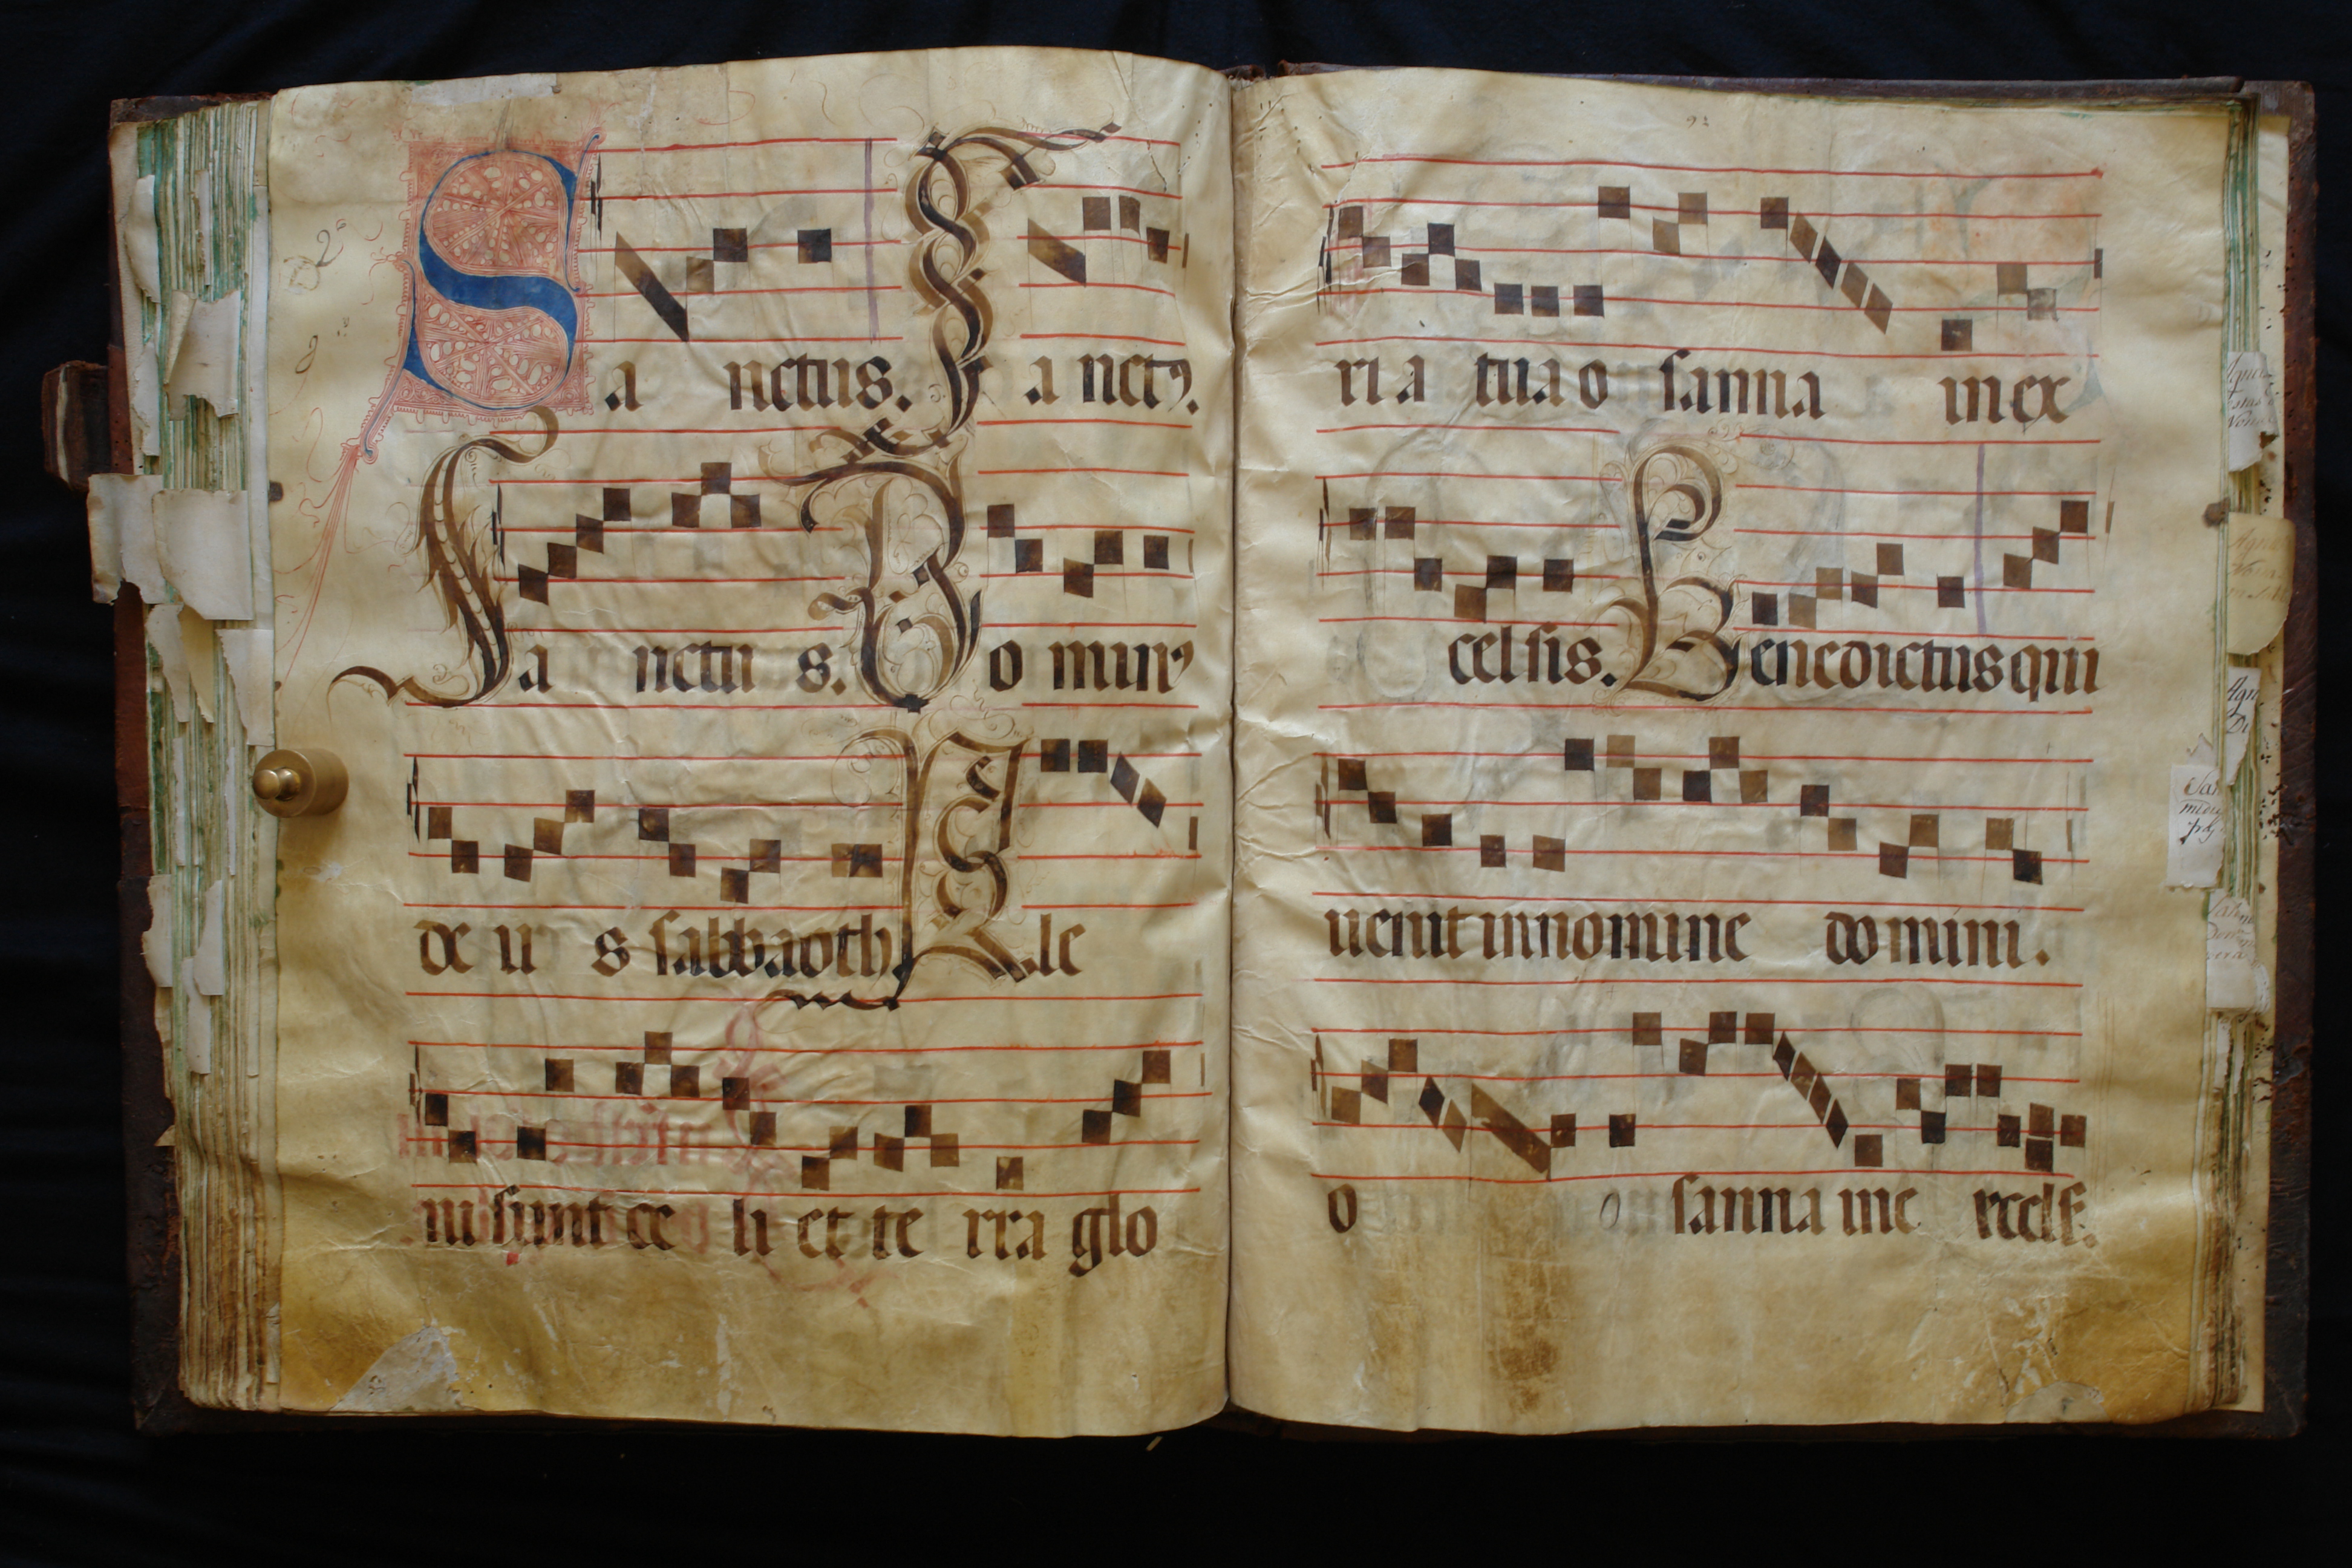 Sa nctus. Sa nctꝰ.
Sa nctu s. Do minꝰ
de u s sabbaoth. Ple
ni sunt ce li et te rra glo
92
ri a tua o sanna in ex
celsis. Benedictus qui
uenit in nomine domini.
o o sanna in e xcelſ.